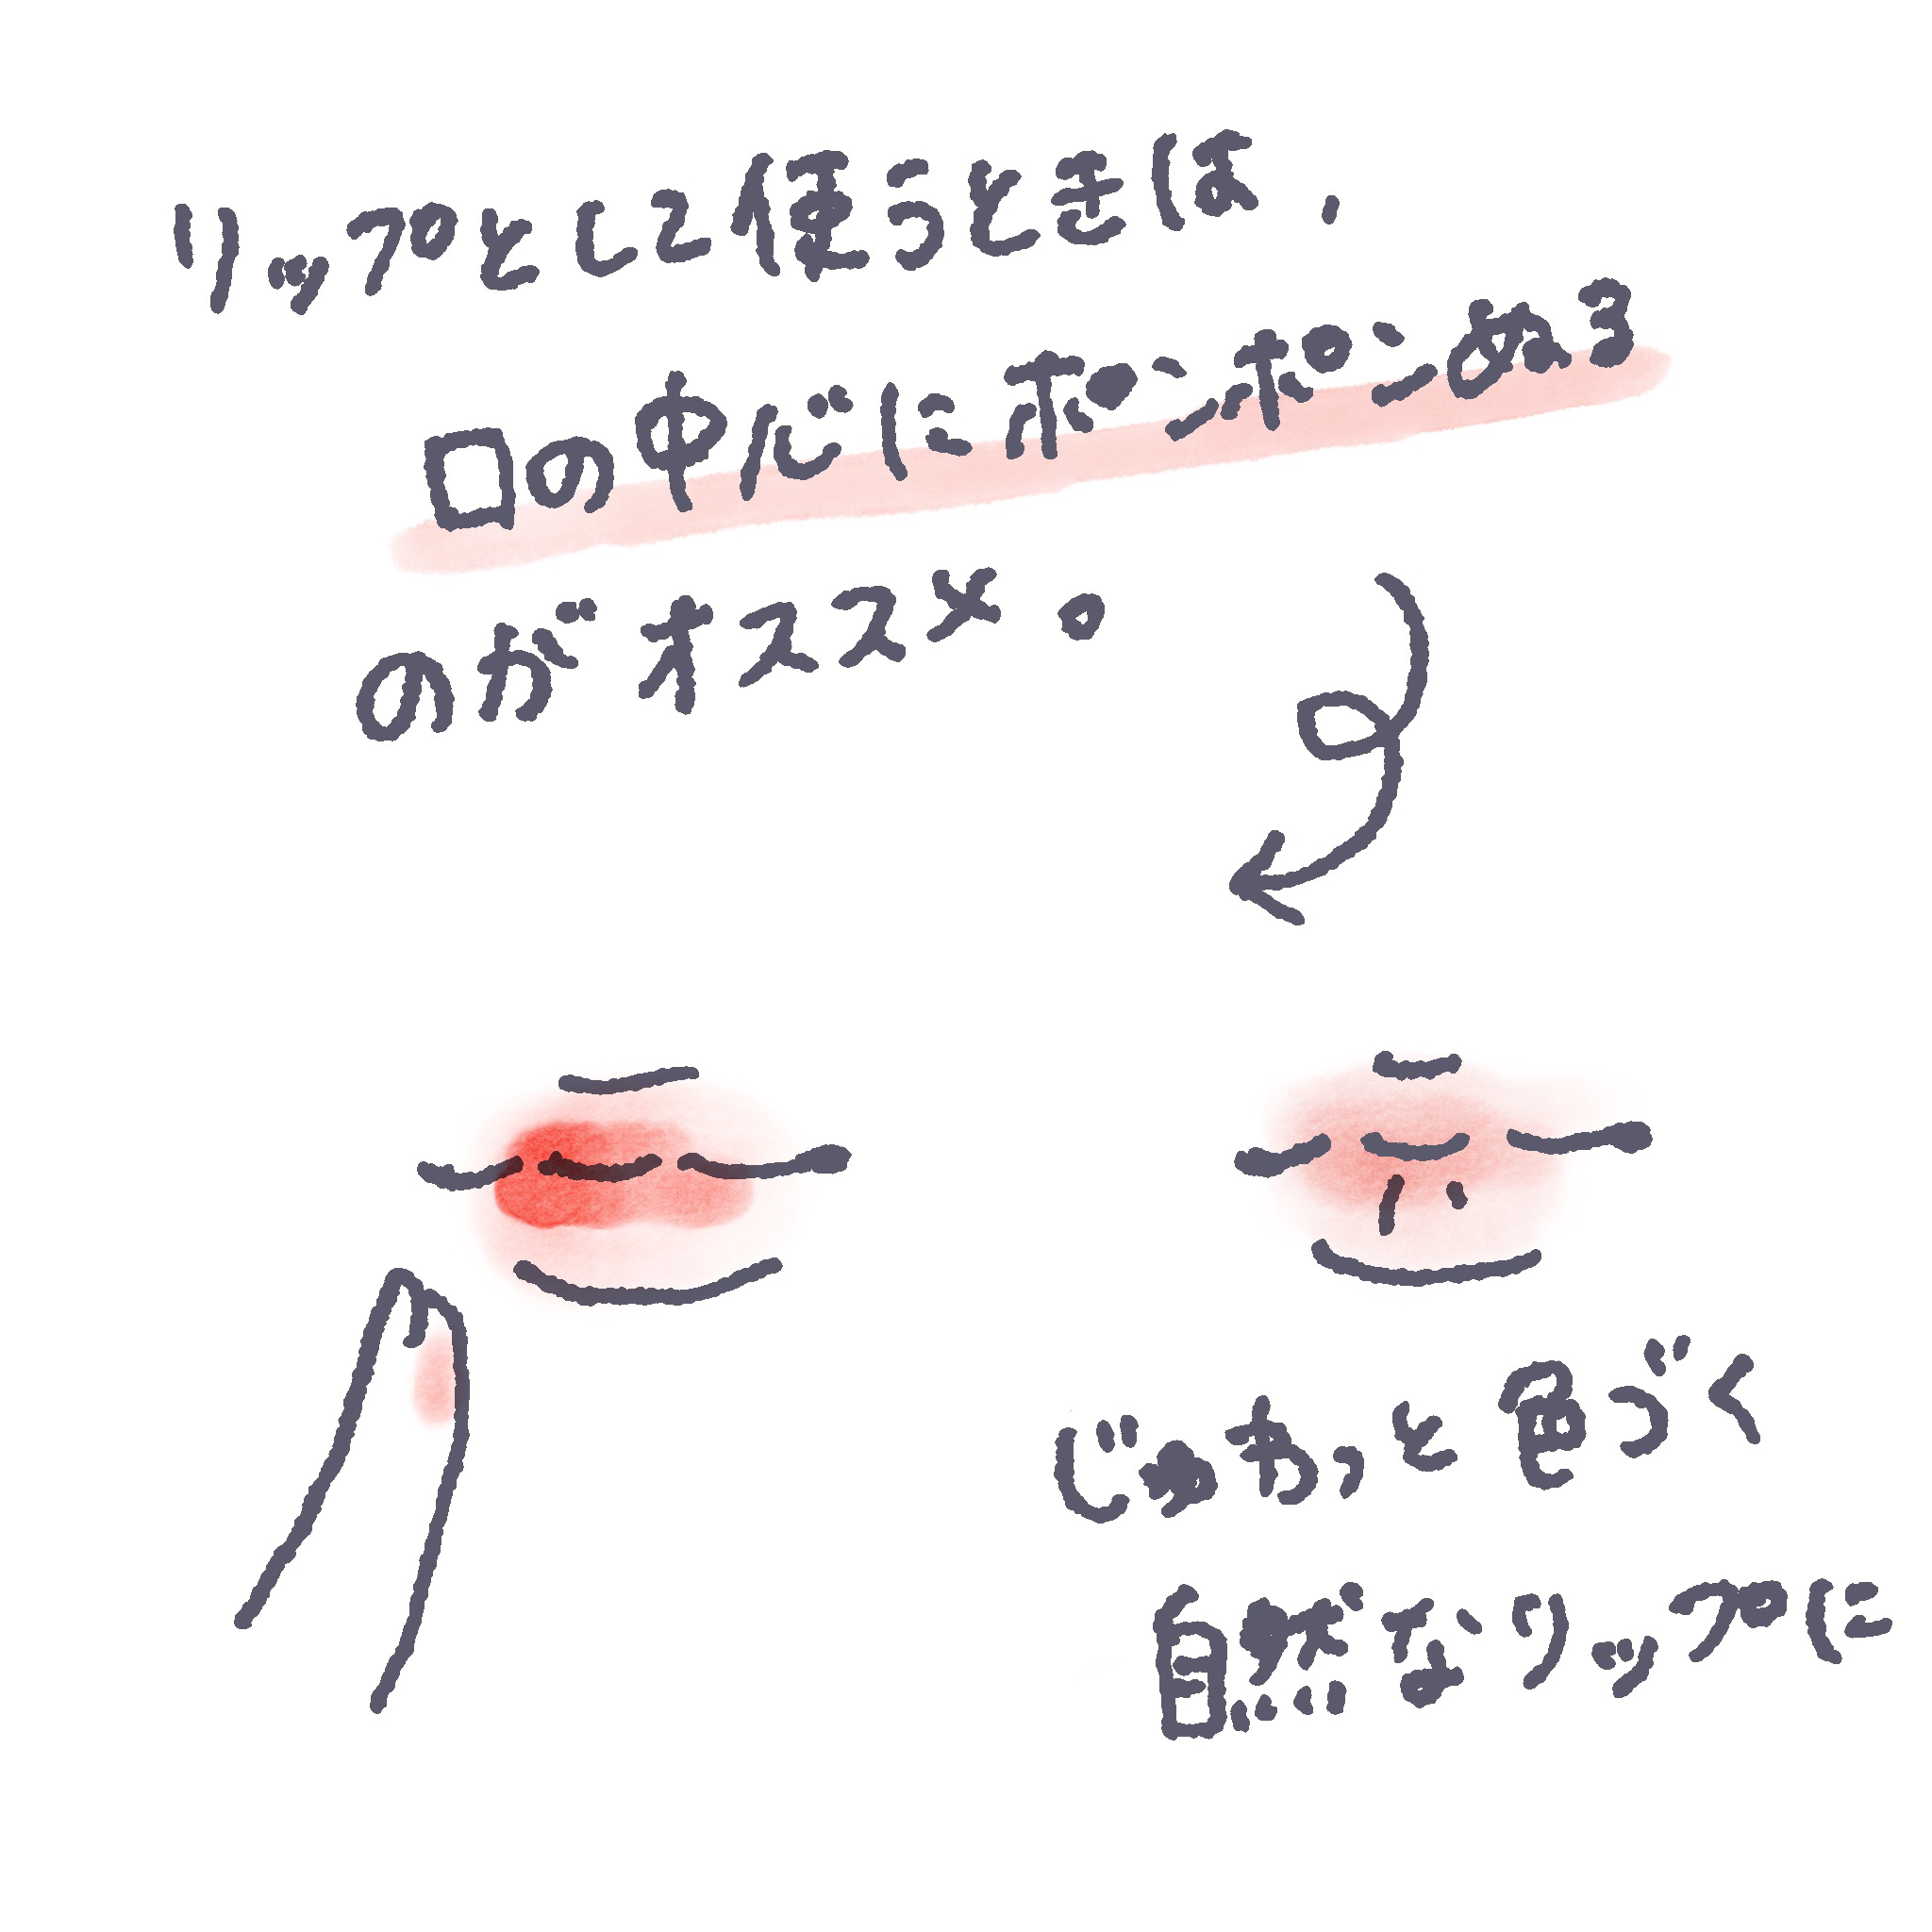 リップとして使うときは、
口の中心にポンポンぬる
のがオススメ。
じゅわっと色づく
自然なリップに